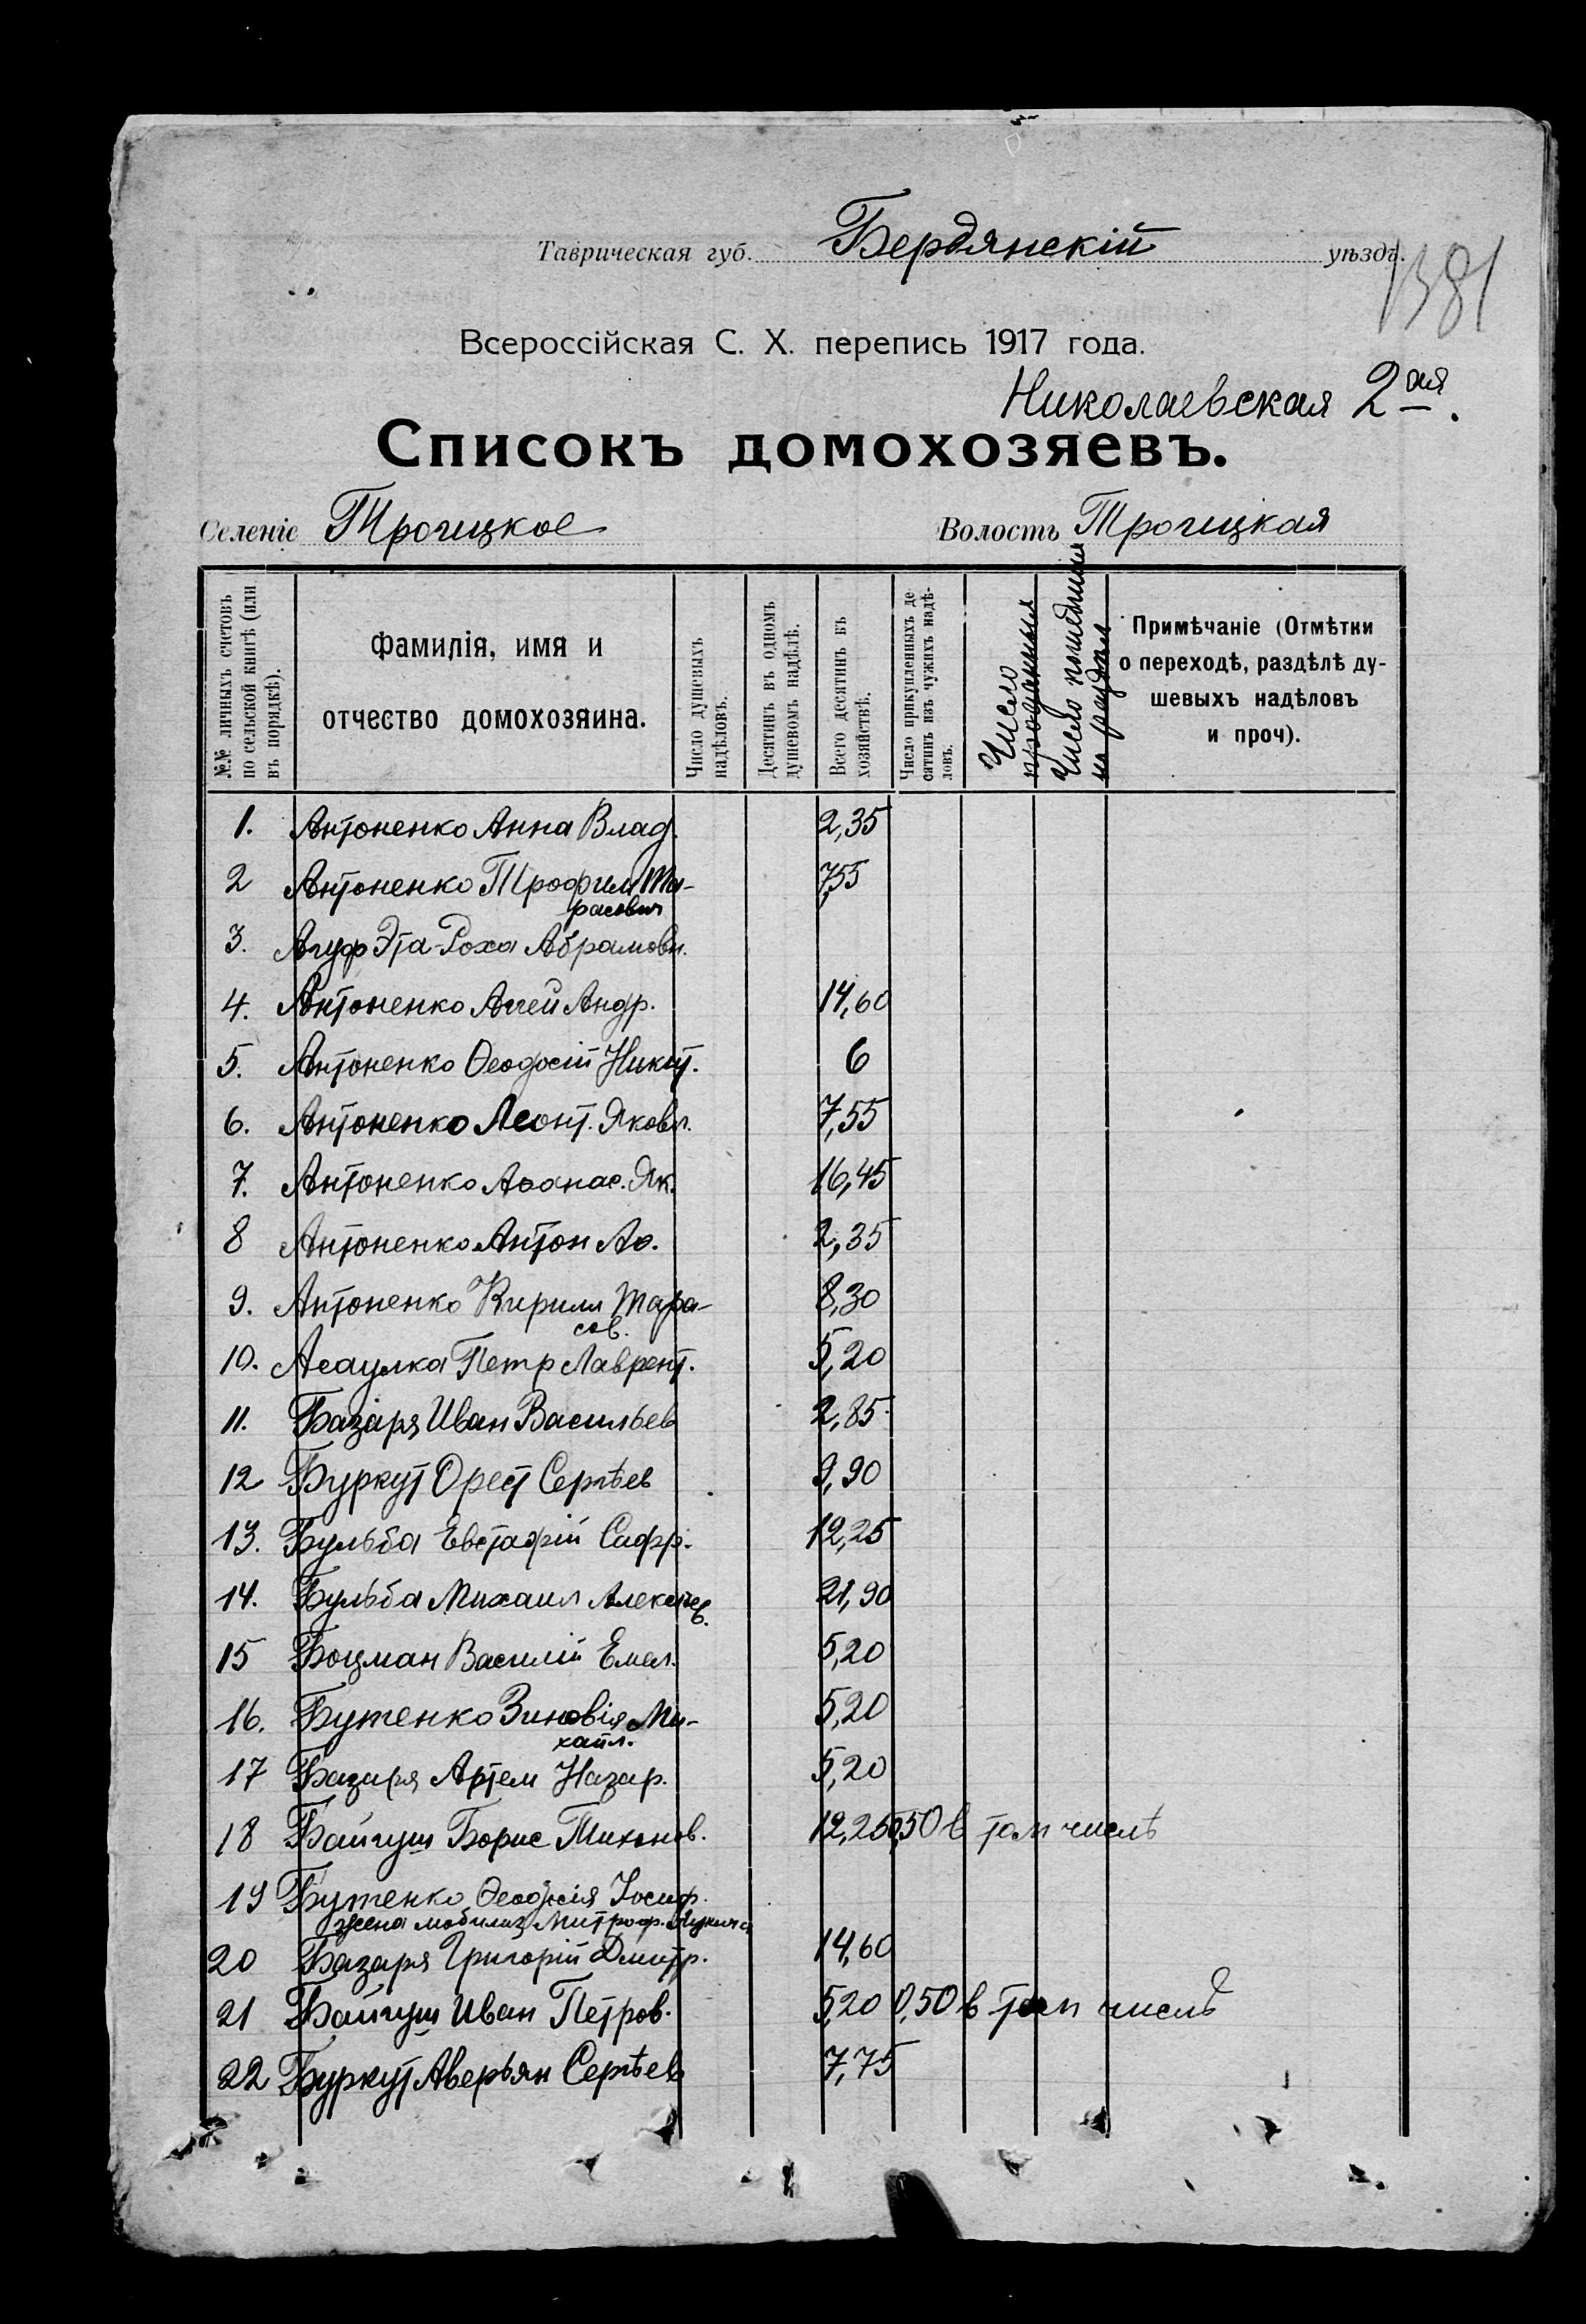 Таврическая губ. Бердянскій уѣздъ.
1381
Всероссійская С. Х. перепись 1917 года.
Николаевская 2ая.
Списокъ домохозяевъ.
Селеніе Троицкое Волость Троицкая
№№ личныхъ счетовъ по сельской книгѣ (или въ порядкѣ).
Фамилія, имя и отчество домохозяина.
Число душевыхъ надѣловъ.
Десятинъ въ одномъ душевомъ надѣлѣ.
Всего десятинъ въ хозяйствѣ.
Число прикупленныхъ десятинъ изъ чужихъ надѣловъ.
Число проданных
Число
Примѣчаніе (Отмѣтки о переходѣ, раздѣлѣ душевыхъ надѣловъ и проч).
1. Антоненко Анна Влад. 2,35
2 Антоненко Трофим Та- 7,55
расович
3. Агуф Эта-Роха Абрамовн.
4. Антоненко Андр. 14,60
5. Антоненко Ѳеодосій Никит. 6
6. Антоненко Леонт. Яковл. 7,55
7. Антоненко Аѳанас. Як. 16,45
8 Антоненко Антон Аѳ. 2,35
9. Антоненко Кирилл Тара- 8,30
сов.
10. Асаулка Петр Лаврент. 5,20
11. Базаря Иван Васильев 2,85
12 Буркут Орест Сергѣев 9,90
13. Бульба Евстафій 12,25
14. Бульба Михаил Алексѣев. 21,90
15 Боцман Василій Емел. 5,20
16. Бутенко Зиновія Ми- 5,20
хайл.
17 Базаря Артем Назар. 5,20
18 Байгуш Борис Тихонов. 12,25 0,50 в том числѣ
19 Бутенко Ѳеодосія Іосиф.
жена мобилиз. Митроф. Лукича
20 Базаря Григорій Дмитр. 14,60
21 Байгуш Иван Петров. 5,20 0,50 в том числѣ
22 Буркут Аверьян Сергѣев 7,75